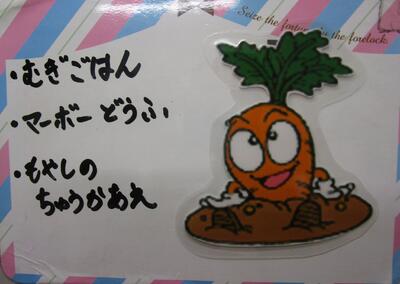 Seize the fortune by the forelock.
・むぎごはん
・マーボーどうふ
・もやしの
ちゅうかあえ